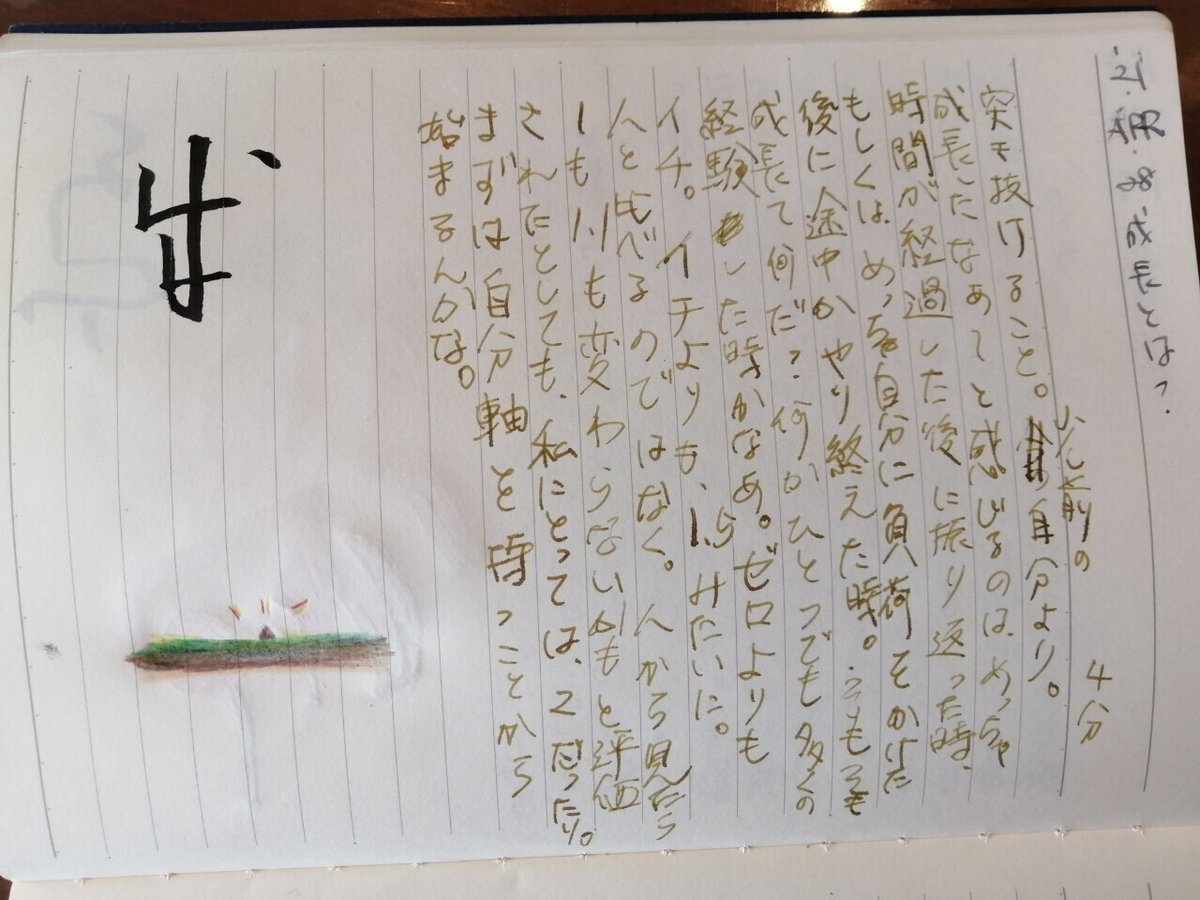 '21. APR. 28. 成長とは?
4分
少し前の
突き抜けること。自分より。
成長したなあてと感じるのは、めっちゃ
時間が経過した後に振り返った時、
もしくはめっちゃ自分に負荷をかけた
後に途中かやり終えた時。そもそも
成長て何だ?何かひとつでも多くの
経験した時かなあ。ゼロよりも
イチ。イチよりも、1.5みたいに。
人と比べるのではなく。人から見たら
1も1.1も変わらないかもと評価
されたとしても、私にとっては、2だったり。
まずは自分軸を持つことから
始まるんかな。